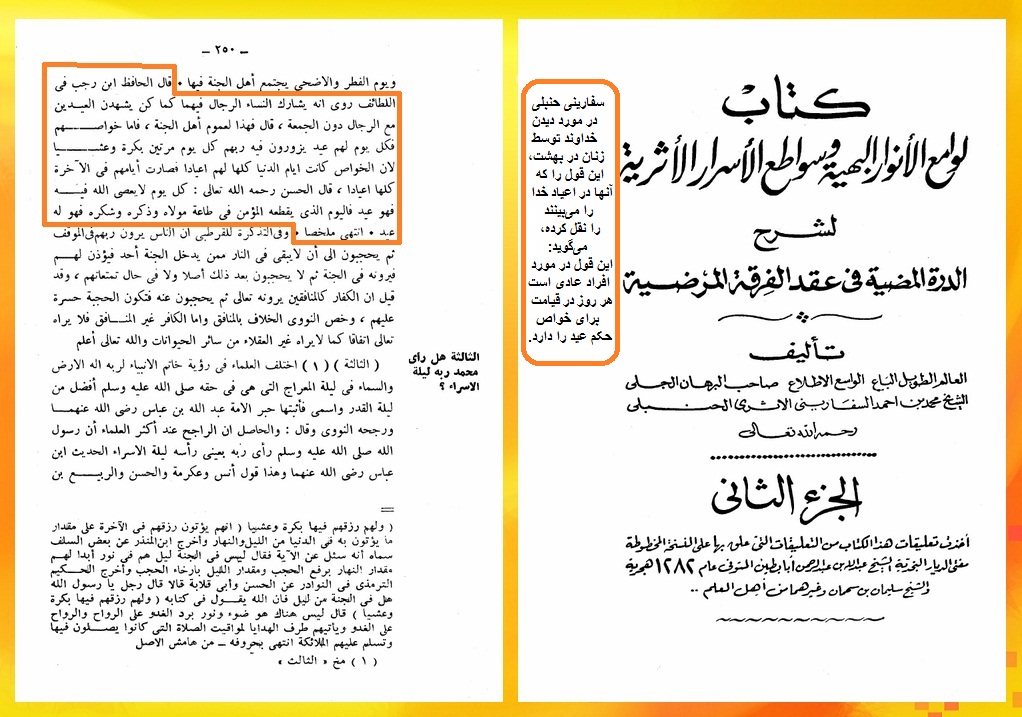 كتاب
لوامع الأنوار البهية وسواطع الأسرار الأثرية
لشرح
الدرة المضية فى عقد الفرقة المرضية
تأليف
العالم الطويل الباع الواسع الاطلاع صاحب البرهان الجلى
الشيخ محمد بن احمد السفارينى الاثرى الحنبلى
رحمه الله تعالى
الجزء الثانى
أخذت تعليقات هذا الكتاب من التعليقات التى على بها على النسخة المخطوطة
مفتى الديار النجدية الشيخ عبد الله بن عبد الرحمن أبا بطين المتوفى عام ١٢٨٢ هجرية
والشيخ سليمان بن سحمان وغيرهما من أهل العلم ..
سفارینی حنبلی
در مورد دیدن
خداوند توسط
زنان در بهشت،
این قول را که
آنها در اعیاد خدا
را می‌بینند
را نقل کرده،
می‌گوید:
این قول در مورد
افراد عادی است
هر روز در قیامت
برای خواص
حکم عید را دارد.
ـ ٢٥٠ ـ
ويوم الفطر والاضحى يجتمع أهل الجنة فيها • قال الحافظ ابن رجب فى
اللطائف روى انه يشارك النساء الرجال فيهما كما كن يشهدن العيدين
مع الرجال دون الجمعة ، قال فهذا لعموم أهل الجنة ، فاما خواصهم
فكل يوم لهم عيد يزورون فيه ربهم كل يوم مرتين بكرة وعشيا
لان الخواص كانت ايام الدنيا كلها لهم اعيادا فصارت أيامهم فى الآخرة
كلها اعيادا ، قال الحسن رحمه الله تعالى : كل يوم لايعصى الله فيه
فهو عيد فاليوم الذى يقطعه المؤمن فى طاعة مولاه وذكره وشكره فهو له
عيد • انتهى ملخصا • وفى التذكرة للقرطبى ان الناس يرون ربهم فى الموقف
ثم يحجبون الى أن لايبقى فى النار ممن يدخل الجنة أحد فيؤذن لهم
فيرونه فى الجنة ثم لا يحجبون بعد ذلك أصلا ولا فى حال تمتعاتهم ، وقد
قيل ان الكفار كالمنافقين يرونه تعالى ثم يحجبون عنه فتكون الحجبة حسرة
عليهم ، وخص النووى الخلاف بالمنافق واما الكافر غير المنافق فلا يراه
تعالى اتفاقا كما لايراه غير العقلاء من سائر الحيوانات والله تعالى أعلم
( الثالثة ) (١) اختلف العلماء فى رؤية خاتم الانبياء لربه اله الارض
والسماء فى ليلة المعراج التى هى فى حقه صلى الله عليه وسلم أفضل من
ليلة القدر واسمى فأثبتها حبر الامة عبد الله بن عباس رضى الله عنهما
ورجحه النووى وقال : والحاصل ان الراجح عند أكثر العلماء أن رسول
الله صلى الله عليه وسلم رأى ربه بعينى رأسه ليلة الاسراء الحديث ابن
عباس رضى الله عنهما وهذا قول أنس وعكرمة والحسن والربيع بن
الثالثة هل رأى
محمد ربه ليلة
الاسراء ؟
( ولهم رزقهم فيها بكرة وعشيا ( انهم يؤتون رزقهم فى الآخرة على مقدار
ما يؤتون به فى الدنيا من الليل والنهار وأخرج ابن المنذر عن بعض السلف
سماه انه سئل عن الآية فقال ليس فى الجنة ليل هم فى نور أبدا لهم
مقدار النهار برفع الحجب ومقدار الليل بارخاء الحجب وأخرج الحكيم
الترمذى فى النوادر عن الحسن وأبى قلابة قالا قال رجل يا رسول الله
هل فى الجنة من ليل فان الله يقول فى كتابه ( ولهم رزقهم فيها بكرة
وعشيا ) قال ليس هناك هو ضوء ونور يرد الغدو على الرواح والرواح
على الغدو وياتيهم طرف الهدايا لمواقيت الصلاة التى كانوا يصلون فيها
وتسلم عليهم الملائكة انتهى بحروفه ــ من هامش الاصل
(١) مخ « الثالث »